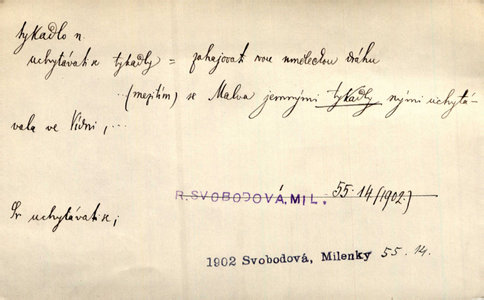 tykadlo n.
uchytávati se tykadly = zahajovati svou uměleckou dráhu
(mezitím) se Malva jemnými tykadly svými uchytá-
vala ve Vídni, ...
R. SVOBODOVÁ, MIL. 55.14 (1902.)
Sr uchytávati se;
1902 Svobodová, Milenky 55.14.